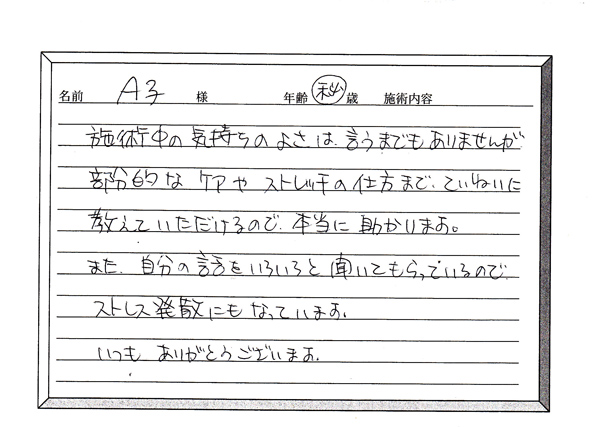 名前 A子 様 年齢 秘 歳 施術内容
施術中の気持ちのよさは、言うまでもありませんが
部分的な ケアや ストレッチの仕方まで、ていねいに
教えていただけるので、本当に助かります。
また、自分の話をいろいろと聞いてもらっているので、
ストレス発散にもなっています。
いつも ありがとうございます。